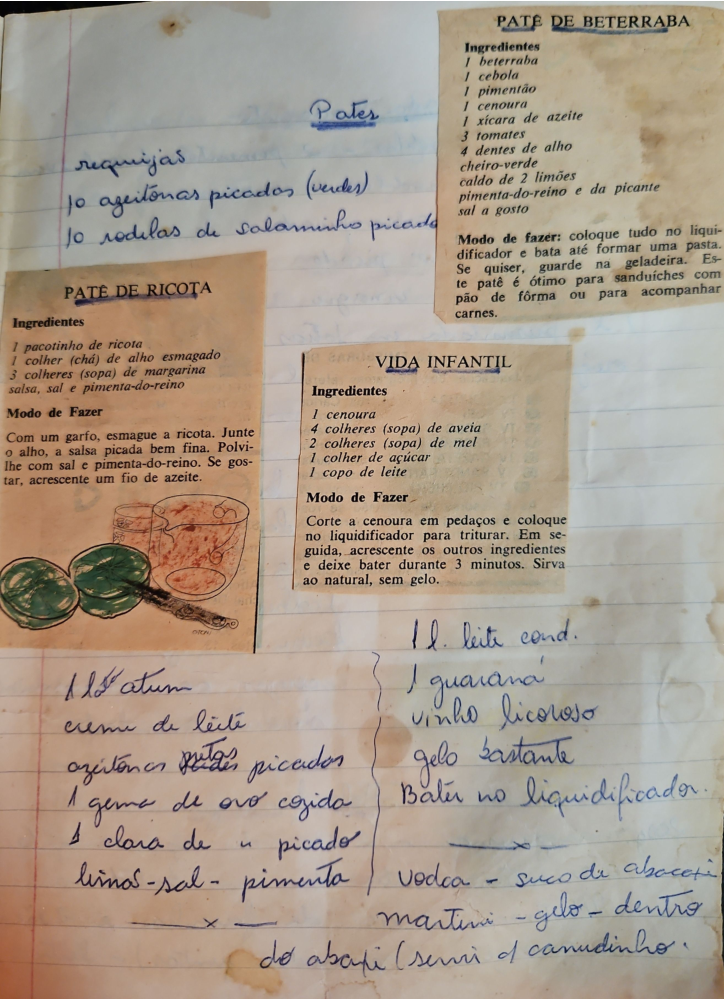 Pates
requijão
10 azeitonas picadas (verdes)
10 rodelas de salaminho picado
PATÊ DE BETERRABA
Ingredientes
1 beterraba
1 cebola
1 pimentão
1 cenoura
1 xícara de azeite
3 tomates
4 dentes de alho
cheiro-verde
caldo de 2 limões
pimenta-do-reino e da picante
sal a gosto
Modo de fazer: coloque tudo no liqui-
dificador e bata até formar uma pasta.
Se quiser, guarde na geladeira. Es-
te patê é ótimo para sanduíches com
pão de fôrma ou para acompanhar
carnes.
PATÊ DE RICOTA
Ingredientes
1 pacotinho de ricota
1 colher (chá) de alho esmagado
3 colheres (sopa) de margarina
salsa, sal e pimenta-do-reino
Modo de Fazer
Com um garfo, esmague a ricota. Junte
o alho, a salsa picada bem fina. Polvi-
lhe com sal e pimenta-do-reino. Se gos-
tar, acrescente um fio de azeite.
VIDA INFANTIL
Ingredientes
1 cenoura
4 colheres (sopa) de aveia
2 colheres (sopa) de mel
1 colher de açúcar
1 copo de leite
Modo de Fazer
Corte a cenoura em pedaços e coloque
no liquidificador para triturar. Em se-
guida, acrescente os outros ingredientes
e deixe bater durante 3 minutos. Sirva
ao natural, sem gelo.
1 atum
creme de leite
azeitonas pretas picadas
1 gema de ovo cozida
1 clara de " picado
limão - sal - pimenta
1 l. leite cond.
1 guaraná
vinho licoroso
gelo bastante
Bater no liquidificador.
vodca - suco de abacaxi
martini - gelo - dentro
do abaxi (servi c/ canudinho.